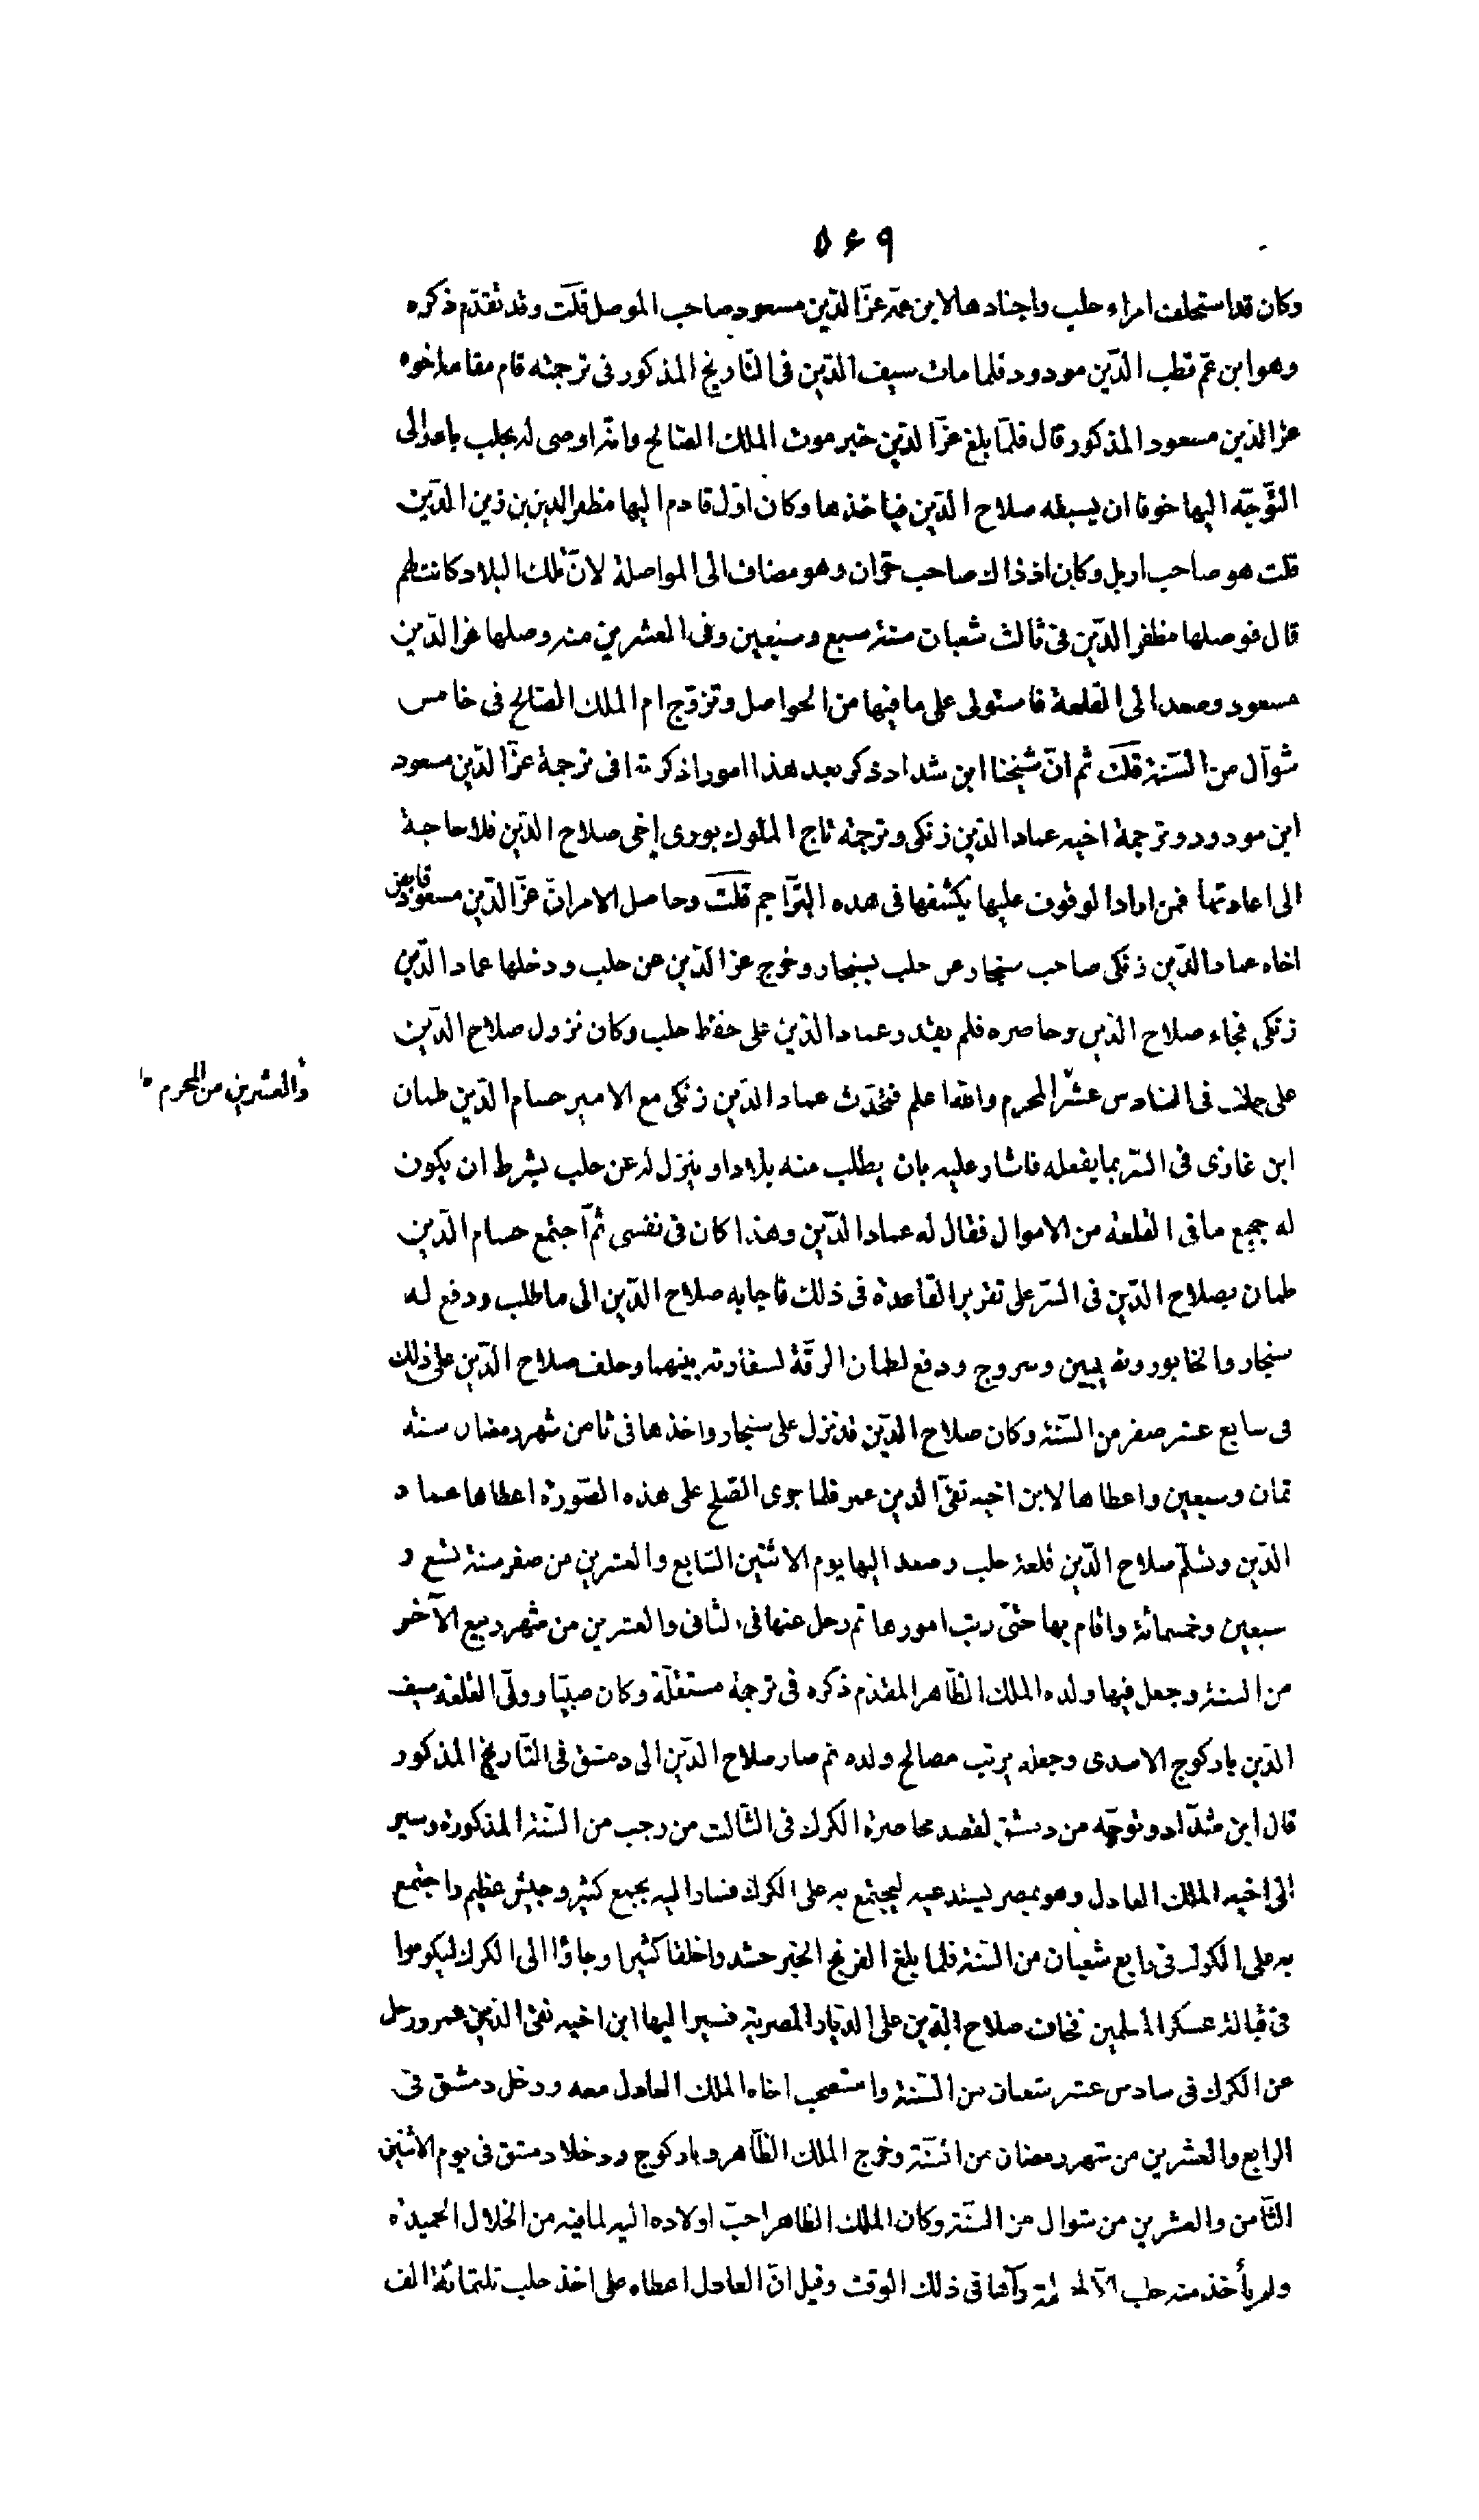 ٥٦٩
وكان قد استحلف امراء حلب واجنادها لابن عمّه عزّ الدّين مسعود صاحب الموصل قلت وقد تقدّم ذكره
وهو ابن عمّ قطب الدّين مودود فلما مات سيف الدّين فى التّاريخ المذكور فى ترجمته قام مقامه اخوه
عز الدين مسعود المذكور قال فلمّا بلغ عزّ الدّين خبر موت الملك الصّالح وانّه اوصى له بحلب بادر الى
التّوجّه اليها خوفا ان يسبقه صلاح الدّين فياخذها وكان اوّل قادم اليها مظفر الدين بن زين الدّين
قلت هو صاحب اربل وكان اذ ذاك صاحب حرّان وهو مضاف الى المواصلة لانّ تلك البلاد كانت لهم
قال فوصلها مظفر الدّين فى ثالث شعبان سنة سبع وسبعين وفى العشرين منه وصلها عز الدّين
مسعود وصعد الى القلعة فاستولى على ما فيها من الحواصل وتزوّج ام الملك الصّالح فى خامس
شوّال من السّنة قلت ثم انّ شيخنا ابن شداد ذكر بعد هذا امورا ذكرتها فى ترجمة عزّ الدّين مسعود
ابن مودود وترجمة اخيه عماد الدّين زنكى وترجمة تاج الملوك بورى اخى صلاح الدّين فلا حاجة
الى اعادتها فمن اراد الوقوف عليها يكشفها فى هذه التّراجم قلت وحاصل الامر انّ عزّ الدّين مسعود قايض
اخاه عماد الدّين زنكى صاحب سنجار عن حلب بسنجار وخرج عز الدّين عن حلب ودخلها عماد الدّين
زنكى فجاء صلاح الدّين وحاصره فلم يقدر عماد الدّين على حفظ حلب وكان نزول صلاح الدّين
على حلب فى السّادس عشر المحرم والله اعلم فتحدّث عماد الدّين زنكى مع الامير حسام الدّين طمان
والعشرين من المحرم
ابن غازى فى السّر بما يفعله فاشار عليه بان يطلب منه بلادا وينزل له عن حلب بشرط ان يكون
له جميع ما فى القلعة من الاموال فقال له عماد الدّين وهذا كان فى نفسى ثمّ اجتمع حسام الدّين
طمان بصلاح الدّين فى السّر على تقرير القاعدة فى ذلك فاجابه صلاح الدّين الى ما طلب ودفع له
سنجار والخابور ونصيبين وسروج ودفع لطمان الرقّة لسفارته بينهما وحلف صلاح الدّين على ذلك
فى سابع عشر صفر من السّنة وكان صلاح الدّين قد نزل على سنجار واخذها فى ثامن شهر رمضان سنة
ثمان وسبعين واعطاها لابن اخيه تقىّ الدين عمر فلما جرى الصّلح على هذه الصّورة اعطاها عماد
الدّين وتسلّم صلاح الدّين قلعة حلب وصعد اليها يوم الاثنين السّابع والعشرين من صفر سنة تسع و
سبعين وخمسمائة واقام بها حتّى رتب امورها ثم رحل عنها فى الثانى والعشرين من شهر ربيع الآخر
من السنة وجعل فيها ولده الملك الظّاهر المقدم ذكره فى ترجمة مستقلّة وكان صبيّا وولّى القلعة سيف
الدّين يازكوج الاسدى وجعله يرتب مصالح ولده ثم صار صلاح الدّين الى دمشق فى التّاريخ المذكور
قال ابن شدّاد وتوجّه من دمشق لقصد محاصرة الكرك فى الثّالث من رجب من السّنة المذكورة وسير
الى اخيه الملك العادل وهو بمصر يستدعيه ليجتمع به على الكرك فسار اليه بجمع كثير وجيش عظيم واجتمع
به على الكرك فى رابع شعبان من السّنة فلما بلغ الفرنج الخبر حشدوا خلقا كثيرا وجاؤا الى الكرك ليكونوا
فى قبالة عسكر المسلمين فخاف صلاح الدّين على الديار المصرية فسير اليها ابن اخيه تقى الدّين عمر ورحل
عن الكرك فى سادس عشر شعبان من السّنة واستصحب اخاه الملك العادل معه ودخل دمشق فى
الرابع والعشرين من شهر رمضان من السّنة وخرج الملك الظّاهر ويازكوج ودخلا دمشق فى يوم الاثنين
الثّامن والعشرين من شوال من السّنة وكان الملك الظاهر احبّ اولاده اليه لما فيه من الخلال الحميدة
ولم يأخذ منه حلب الّا لمصلحة رآها فى ذلك الوقت وقيل انّ العادل اعطاه على اخذ حلب ثلثمائة الف